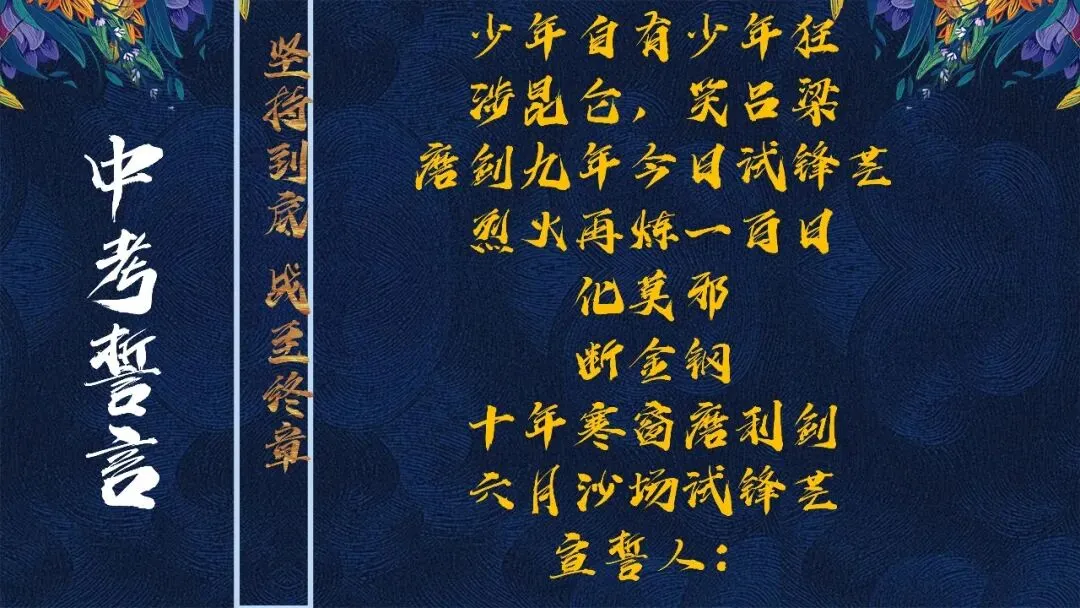 中考誓言
坚持到底 战至终章
少年自有少年狂
涉昆仑，笑吕梁
磨剑九年今日试锋芒
烈火再炼一百日
化莫邪
断金钢
十年寒窗磨利剑
六月沙场试锋芒
宣誓人：